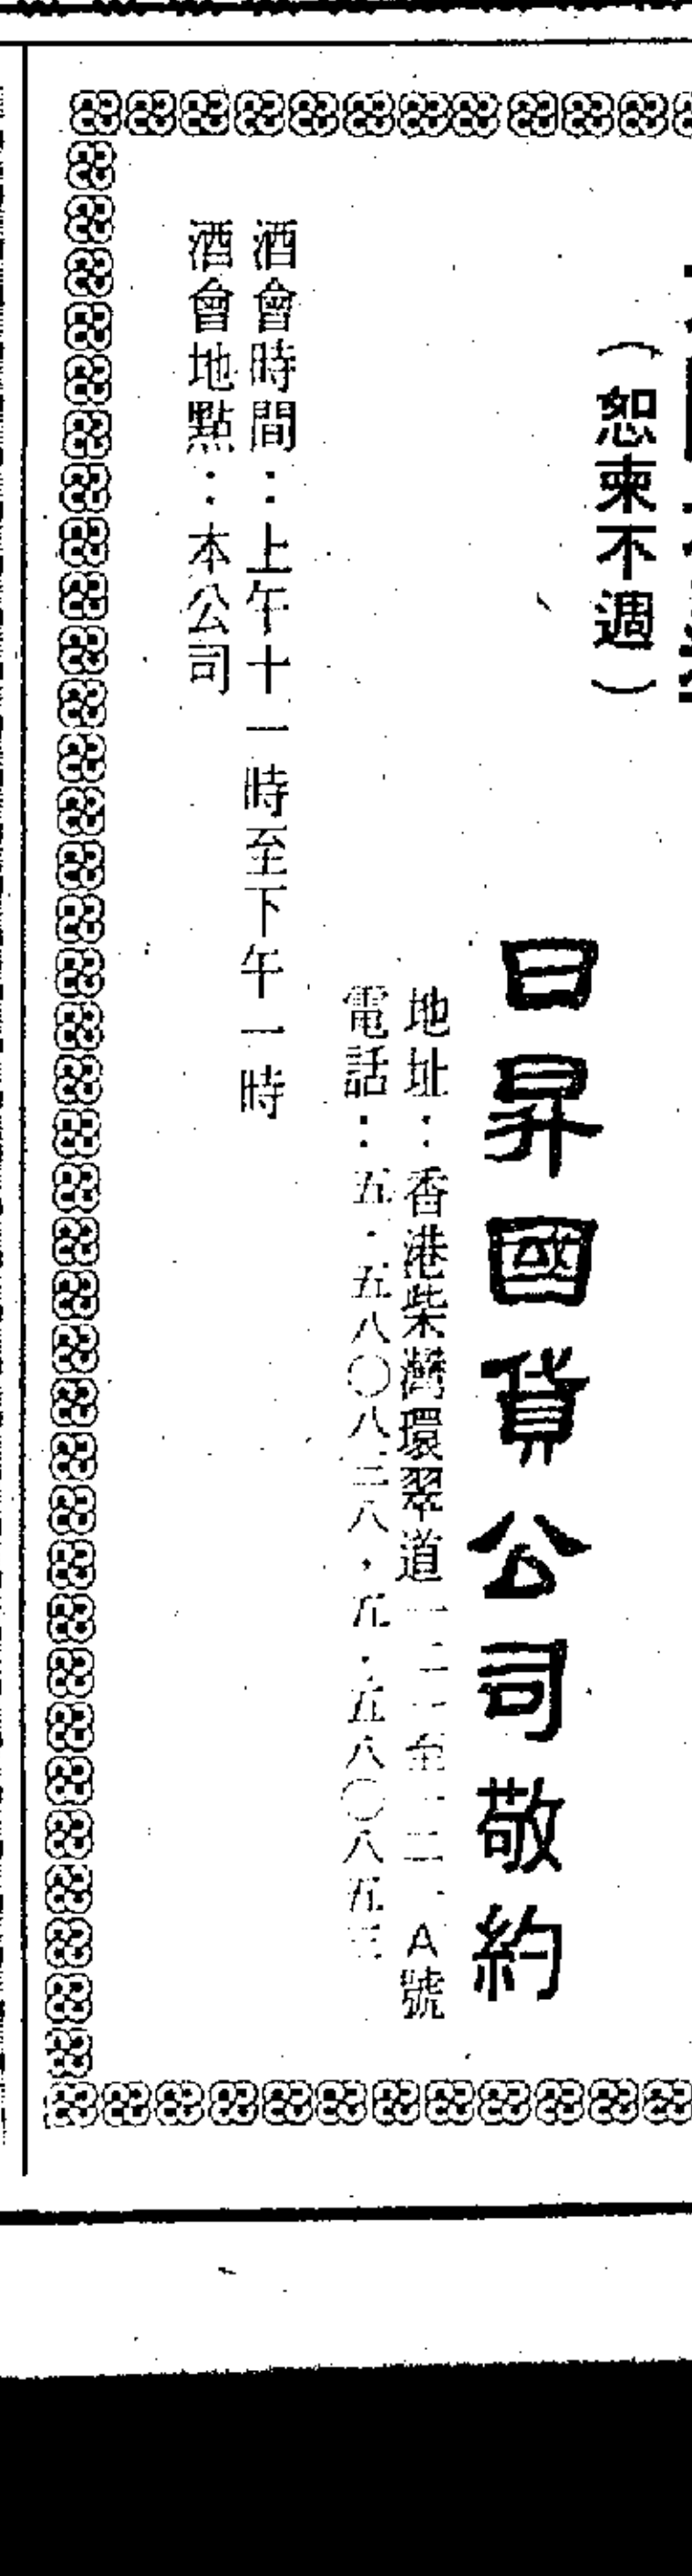 （恕柬不週）
日昇國貨公司敬約
地址：香港柴灣環翠道一二一至一二一A號
電話：五・五八〇八三八，五・五八〇八五三
酒會時間：上午十一時至下午一時
酒會地點：本公司